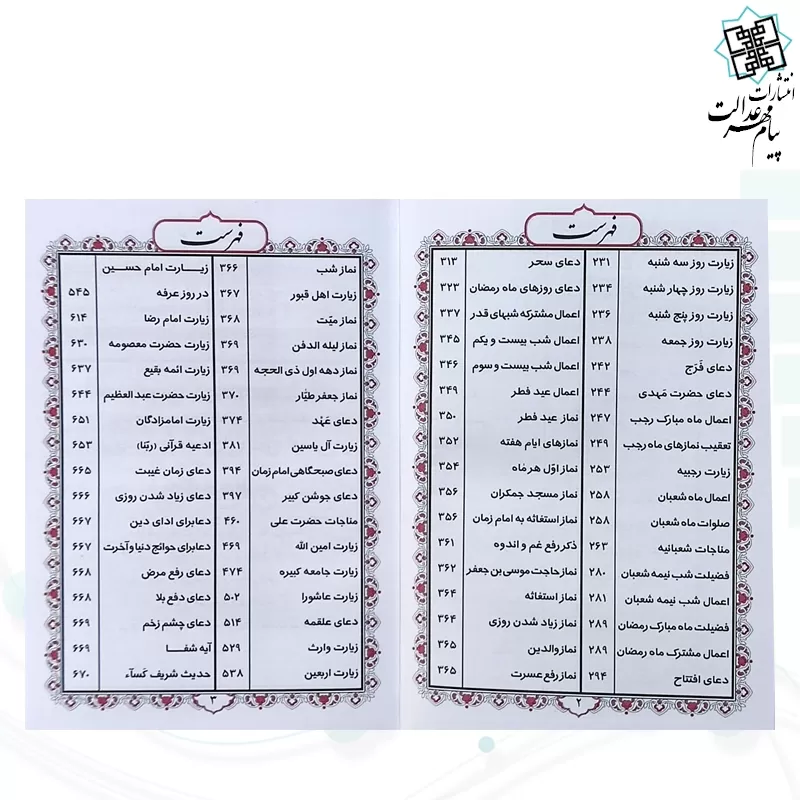 انتشارات
پیام مهر عدالت
فهرست
زیارت روز سه شنبه ۲۳۱
زیارت روز چهار شنبه ۲۳۴
زیارت روز پنج شنبه ۲۳۶
زیارت روز جمعه ۲۳۸
دعای فَرَج ۲۴۲
دعای حضرت مَهدی ۲۴۴
اعمال ماه مبارک رجب ۲۴۷
تعقیب نمازهای ماه رجب ۲۴۹
زیارت رجبیه ۲۵۳
اعمال ماه شعبان ۲۵۸
صلوات ماه شعبان ۲۵۸
مناجات شعبانیه ۲۶۳
فضیلت شب نیمه شعبان ۲۸۰
اعمال شب نیمه شعبان ۲۸۱
فضیلت ماه مبارک رمضان ۲۸۹
اعمال مشترک ماه رمضان ۲۸۹
دعای افتتاح ۲۹۴
دعای سحر ۳۱۳
دعای روزهای ماه رمضان ۳۲۳
اعمال مشترکه شبهای قدر ۳۳۷
اعمال شب بیست و یکم ۳۴۵
اعمال شب بیست و سوم ۳۴۶
اعمال عید فطر ۳۴۹
نماز عید فطر ۳۵۰
نمازهای ایام هفته ۳۵۲
نماز اوّل هر ماه ۳۵۴
نماز مسجد جمکران ۳۵۶
نماز استغاثه به امام زمان ۳۵۶
ذکر رفع غم و اندوه ۳۶۱
نماز حاجت موسی بن جعفر ۳۶۲
نماز استغاثه ۳۶۴
نماز زیاد شدن روزی ۳۶۴
نماز والدین ۳۶۵
نماز رفع عسرت ۳۶۵
۲
فهرست
نماز شب ۳۶۶
زیارت اهل قبور ۳۶۷
نماز میّت ۳۶۸
نماز لیله الدفن ۳۶۹
نماز دهه اول ذی الحجه ۳۶۹
نماز جعفر طیّار ۳۷۰
دعای عَهد ۳۷۴
زیارت آل یاسین ۳۸۱
دعای صبحگاهی امام زمان ۳۹۴
دعای جوشن کبیر ۳۹۷
مناجات حضرت علی ۴۶۰
زیارت امین الله ۴۶۹
زیارت جامعه کبیره ۴۷۴
زیارت عاشورا ۵۰۲
دعای علقمه ۵۱۴
زیارت وارث ۵۲۹
زیارت اربعین ۵۳۸
زیـــارت امام حسـین
در روز عرفه ۵۴۵
زیارت امام رضا ۶۱۴
زیارت حضرت معصومه ۶۳۰
زیارت ائمه بقیع ۶۳۷
زیارت حضرت عبدالعظیم ۶۴۴
زیارت امامزادگان ۶۵۱
ادعیه قرآنی (ربّنا) ۶۵۳
دعای زمان غیبت ۶۶۵
دعای زیاد شدن روزی ۶۶۶
دعا برای ادای دین ۶۶۷
دعا برای حوائج دنیا و آخرت ۶۶۷
دعای رفع مرض ۶۶۸
دعای دفع بلا ۶۶۸
دعای چشم زخم ۶۶۹
آیه شفـــا ۶۶۹
حدیث شریف کَساء ۶۷۰
۳